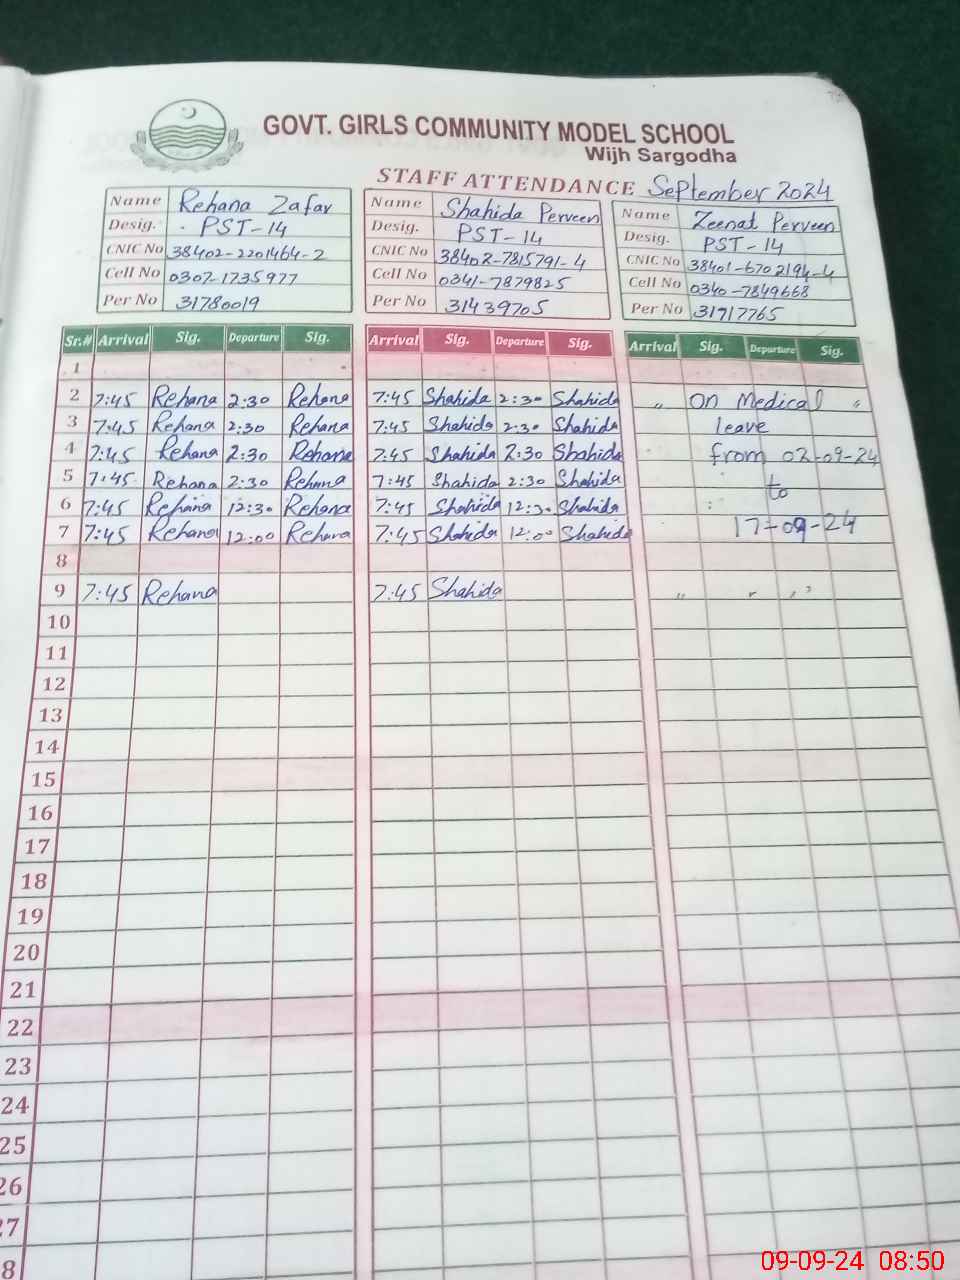 GOVT. GIRLS COMMUNITY MODEL SCHOOL
Wijh Sargodha
STAFF ATTENDANCE September 2024
Name Rehana Zafar
Desig. PST-14
CNIC No 38402-2201464-2
Cell No 0307-1735977
Per No 31780019
Name Shahida Perveen
Desig. PST-14
CNIC No 38402-7815791-4
Cell No 0341-7879825
Per No 31439705
Name Zeenat Perveen
Desig. PST-14
CNIC No 38401-6702194-4
Cell No 0340-7849668
Per No 31717765
Sr.# Arrival Sig. Departure Sig. Arrival Sig. Departure Sig. Arrival Sig. Departure Sig.
1
2 7:45 Rehana 2:30 Rehana 7:45 Shahida 2:30 Shahida " On Medical "
3 7:45 Rehana 2:30 Rehana 7:45 Shahida 2:30 Shahida leave
4 7:45 Rehana 2:30 Rehana 7:45 Shahida 2:30 Shahida from 02-09-24
5 7:45 Rehana 2:30 Rehana 7:45 Shahida 2:30 Shahida to
6 7:45 Rehana 12:30 Rehana 7:45 Shahida 12:30 Shahida
7 7:45 Rehana 12:00 Rehana 7:45 Shahida 12:00 Shahida 17-09-24
8
9 7:45 Rehana 7:45 Shahida " " "
10
11
12
13
14
15
16
17
18
19
20
21
22
23
24
25
26
27
8
09-09-24 08:50